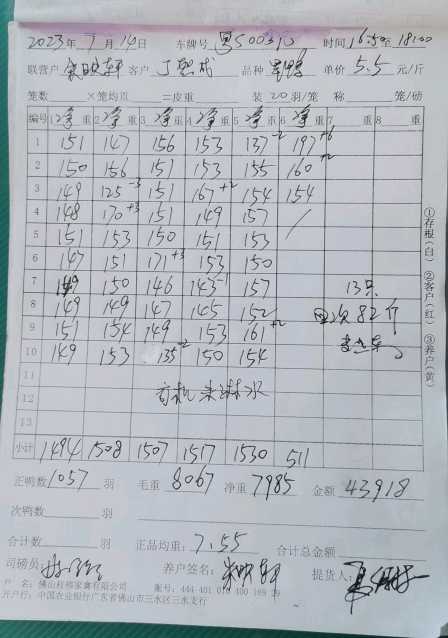 2023年7月14日 车牌号 粤S003 时间16:50至18:00
联营户 客户 品种 单价5.5元/斤
笼数 ×笼均重 =皮重 装20羽/笼 称 笼/磅
编号 1 净重 2 净重 3 净重 4 净重 5 净重 6 净重 7 重 8 重
1 151 147 156 153 137 -2 197 +6
2 150 156 151 153 155 160 +2
3 149 125 -3 151 167 +2 154 154
4 148 170 +3 151 149 157
5 151 153 150 151 153
6 147 151 171 +3 153 150
7 149 150 146 143 -1 157 13只
8 149 149 147 145 152 次82斤
9 151 154 149 153 161 +2
10 149 153 135 -2 150 154
11
12 淋水
13
小计 1494 1508 1507 1517 1530 511
正鸭数1057羽 毛重8067 净重7985 金额43918
次鸭数 羽
合计数 羽 正品均重:7.55 合计总金额
司磅员: 养户签名: 提货人:
户 名:佛山 家禽有限公司 账号:444 401 010 400 169 29
开户行:中国农业银行广东省佛山市三水区三水支行
①存根(白) ②客户(红) ③养户(黄)